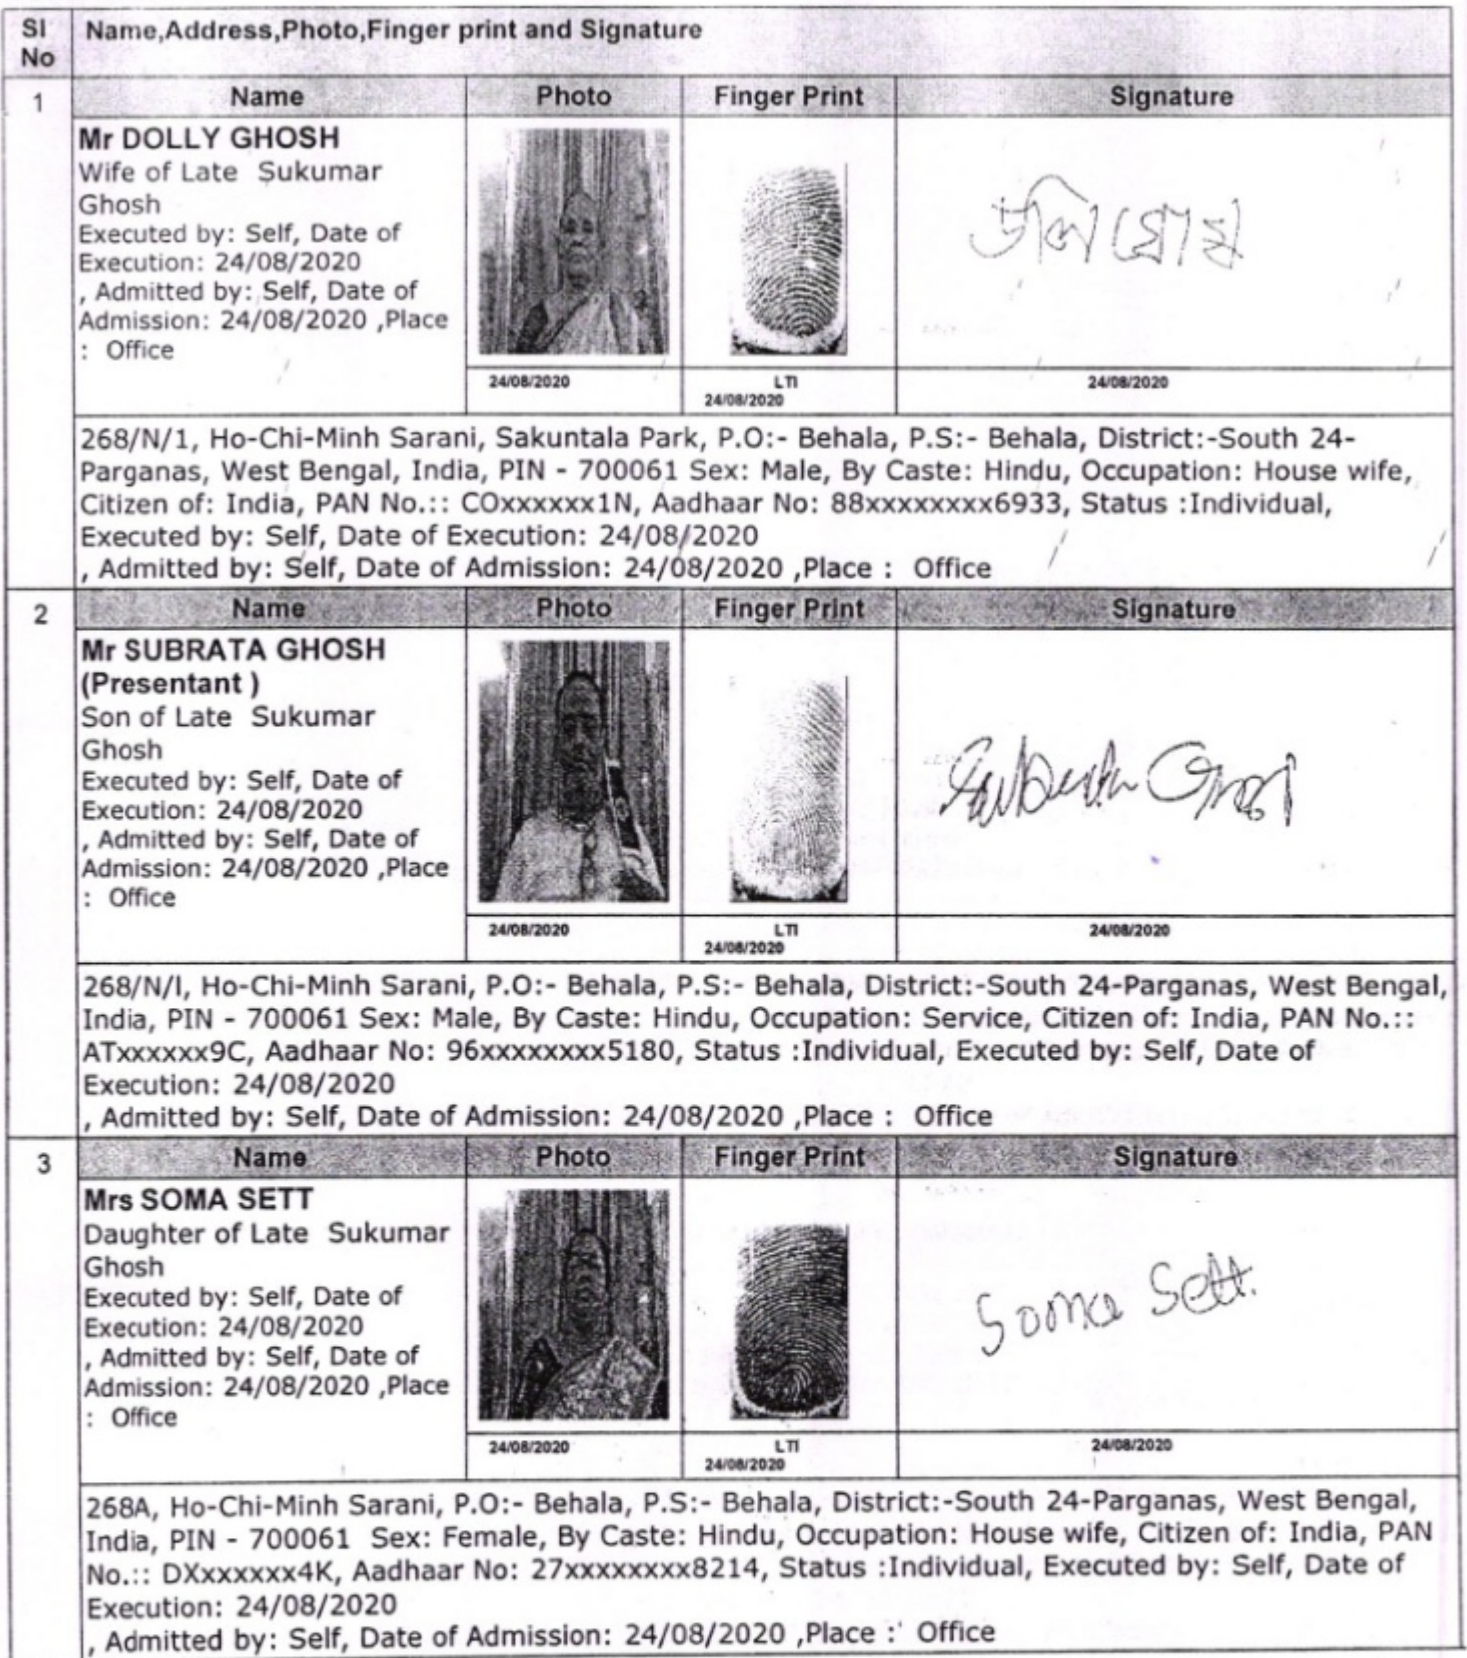 Sl No Name,Address,Photo,Finger print and Signature
1 Name Photo Finger Print Signature
Mr DOLLY GHOSH
Wife of Late Sukumar
Ghosh
Executed by: Self, Date of
Execution: 24/08/2020
, Admitted by: Self, Date of
Admission: 24/08/2020 ,Place
: Office
ডলি ঘোষ
24/08/2020 LTI 24/08/2020
24/08/2020
268/N/1, Ho-Chi-Minh Sarani, Sakuntala Park, P.O:- Behala, P.S:- Behala, District:-South 24-
Parganas, West Bengal, India, PIN - 700061 Sex: Male, By Caste: Hindu, Occupation: House wife,
Citizen of: India, PAN No.:: COxxxxxx1N, Aadhaar No: 88xxxxxxxx6933, Status :Individual,
Executed by: Self, Date of Execution: 24/08/2020
, Admitted by: Self, Date of Admission: 24/08/2020 ,Place : Office
2 Name Photo Finger Print Signature
Mr SUBRATA GHOSH
(Presentant )
Son of Late Sukumar
Ghosh
Executed by: Self, Date of
Execution: 24/08/2020
, Admitted by: Self, Date of
Admission: 24/08/2020 ,Place
: Office
Subrata Ghosh
24/08/2020 LTI 24/08/2020
24/08/2020
268/N/I, Ho-Chi-Minh Sarani, P.O:- Behala, P.S:- Behala, District:-South 24-Parganas, West Bengal,
India, PIN - 700061 Sex: Male, By Caste: Hindu, Occupation: Service, Citizen of: India, PAN No.::
ATxxxxxx9C, Aadhaar No: 96xxxxxxxx5180, Status :Individual, Executed by: Self, Date of
Execution: 24/08/2020
, Admitted by: Self, Date of Admission: 24/08/2020 ,Place : Office
3 Name Photo Finger Print Signature
Mrs SOMA SETT
Daughter of Late Sukumar
Ghosh
Executed by: Self, Date of
Execution: 24/08/2020
, Admitted by: Self, Date of
Admission: 24/08/2020 ,Place
: Office
Soma Sett.
24/08/2020 LTI 24/08/2020
24/08/2020
268A, Ho-Chi-Minh Sarani, P.O:- Behala, P.S:- Behala, District:-South 24-Parganas, West Bengal,
India, PIN - 700061 Sex: Female, By Caste: Hindu, Occupation: House wife, Citizen of: India, PAN
No.:: DXxxxxxx4K, Aadhaar No: 27xxxxxxxx8214, Status :Individual, Executed by: Self, Date of
Execution: 24/08/2020
, Admitted by: Self, Date of Admission: 24/08/2020 ,Place : Office